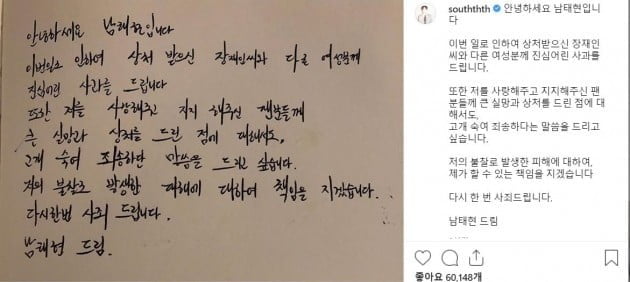 안녕하세요 남태현입니다
이번일로 인하여 상처 받으신 장재인씨와 다른 여성분께
진심어린 사과를 드립니다
또한 저를 사랑해주고 지지 해주신 팬분들께
큰 실망과 상처를 드린 점에 대해서도,
고개 숙여 죄송하단 말씀을 드리고 싶습니다.
저의 불찰로 발생한 피해에 대하여 책임을 지겠습니다.
다시한번 사죄 드립니다.
남태현 드림.
southth 안녕하세요 남태현입니
다
이번 일로 인하여 상처받으신 장재인
씨와 다른 여성분께 진심어린 사과를
드립니다.
또한 저를 사랑해주고 지지해주신 팬
분들께 큰 실망과 상처를 드린 점에 대
해서도,
고개 숙여 죄송하다는 말씀을 드리고
싶습니다.
저의 불찰로 발생한 피해에 대하여,
제가 할 수 있는 책임을 지겠습니다
다시 한 번 사죄드립니다.
남태현 드림
좋아요 60,148개